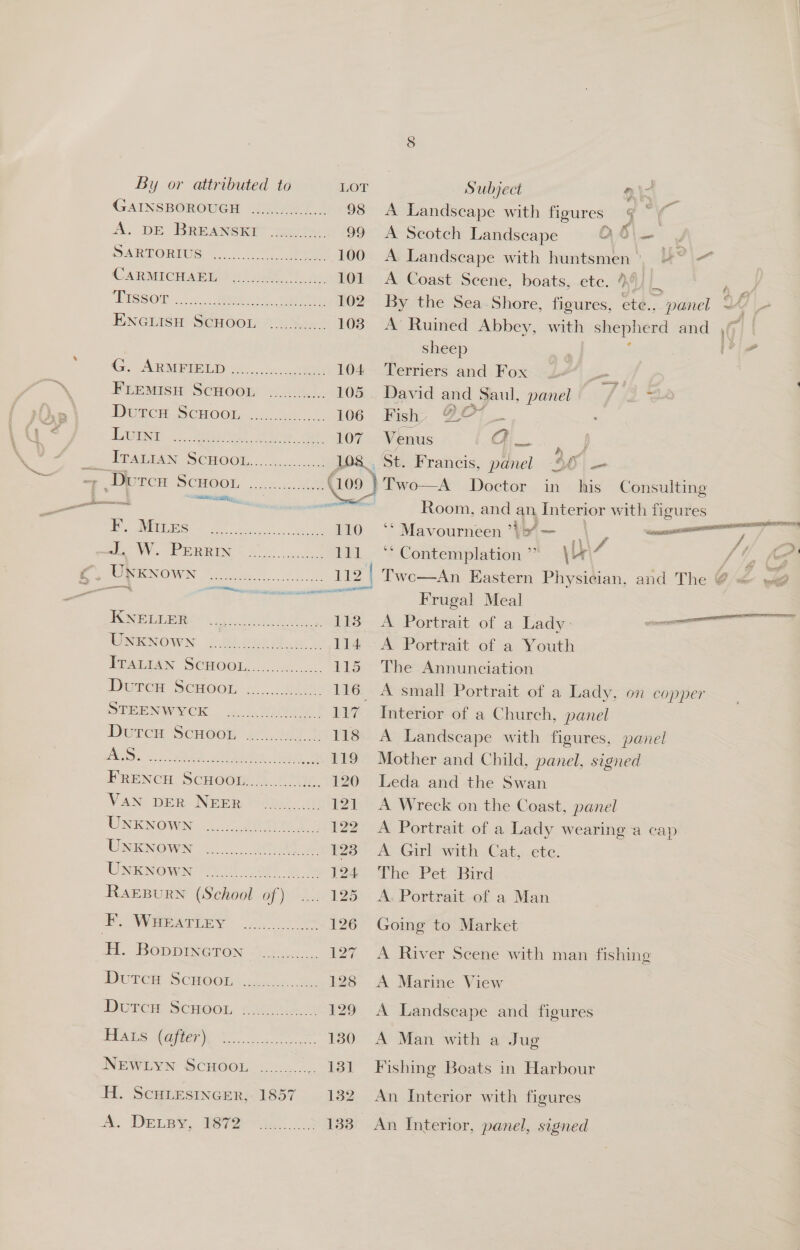 8
By or attributed to LOT Subject
GAINSBOROUGH .............. 98 A Landscape with figures
A. DE BREANSKI ............ 99 A Scotch Landscape
SARTORIUS ..................... 100 A Landscape with huntsmen
CARMICHAEL ................. 101 A Coast Scene, boats, etc.
TISSOT ............................ 102 By the Sea Shore, figures, etc., panel
ENGLISH SCHOOL ............ 103 A Ruined Abbey, with shepherd and
sheep
G. ARMFIELD .................. 104 Terriers and Fox
FLEMISH SCHOOL ............ 105 David and Saul, panel
DUTCH SCHOOL .............. 106 Fish
107 Venus
ITALIAN SCHOOL.............. 108 St. Francis, panel
DUTCH SCHOOL ............... 109 Two—A Doctor in his Consulting
Room, and an Interior with figures
F. MILES ........................ 110 “Mavourneen”
J. W. PERRIN ................. 111 “Contemplation”
UNKNOWN ...................... 112 Two—An Eastern Physician, and The
Frugal Meal
KNELLER ...................... 113 A Portrait of a Lady
UNKNOWN ..................... 114 A Portrait of a Youth
ITALIAN SCHOOL.............. 115 The Annunciation
DUTCH SCHOOL .............. 116 A small Portrait of a Lady, on copper
STEENWYCK .................. 117 Interior of a Church, panel
DUTCH SCHOOL .............. 118 A Landscape with figures, panel
A.S. ................................ 119 Mother and Child, panel, signed
FRENCH SCHOOL.............. 120 Leda and the Swan
VAN DER NEER ............ 121 A Wreck on the Coast, panel
UNKNOWN ..................... 122 A Portrait of a Lady wearing a cap
UNKNOWN ..................... 123 A Girl with Cat, etc.
UNKNOWN ..................... 124 The Pet Bird
RAEBURN (School of) .... 125 A Portrait of a Man
F. WHEATLEY ............... 126 Going to Market
H. BODDINGTON ............ 127 A River Scene with man fishing
DUTCH SCHOOL .............. 128 A Marine View
DUTCH SCHOOL .............. 129 A Landscape and figures
HALS (after) .................... 130 A Man with a Jug
NEWLYN SCHOOL ........... 131 Fishing Boats in Harbour
H. SCHLESINGER, 1857 132 An Interior with figures
A. DELBY, 1872 ............ 133 An Interior, panel, signed